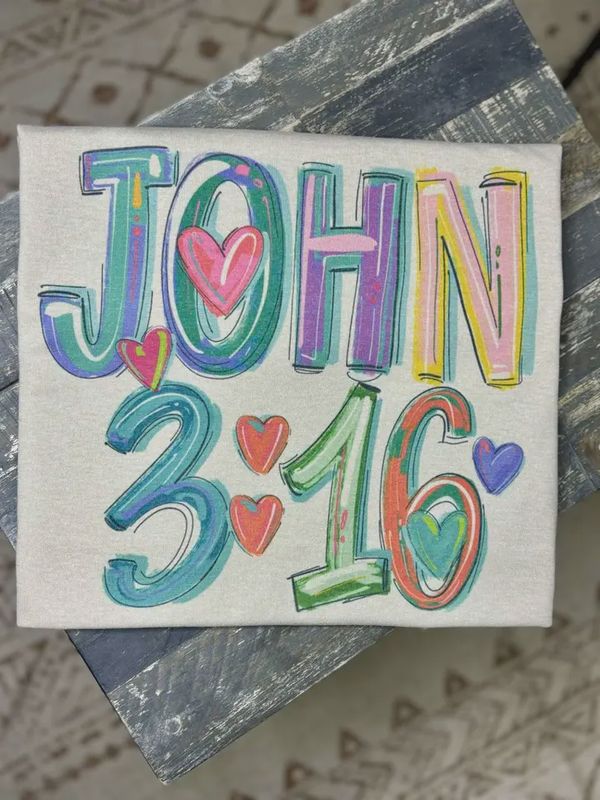 JOHN
3:16